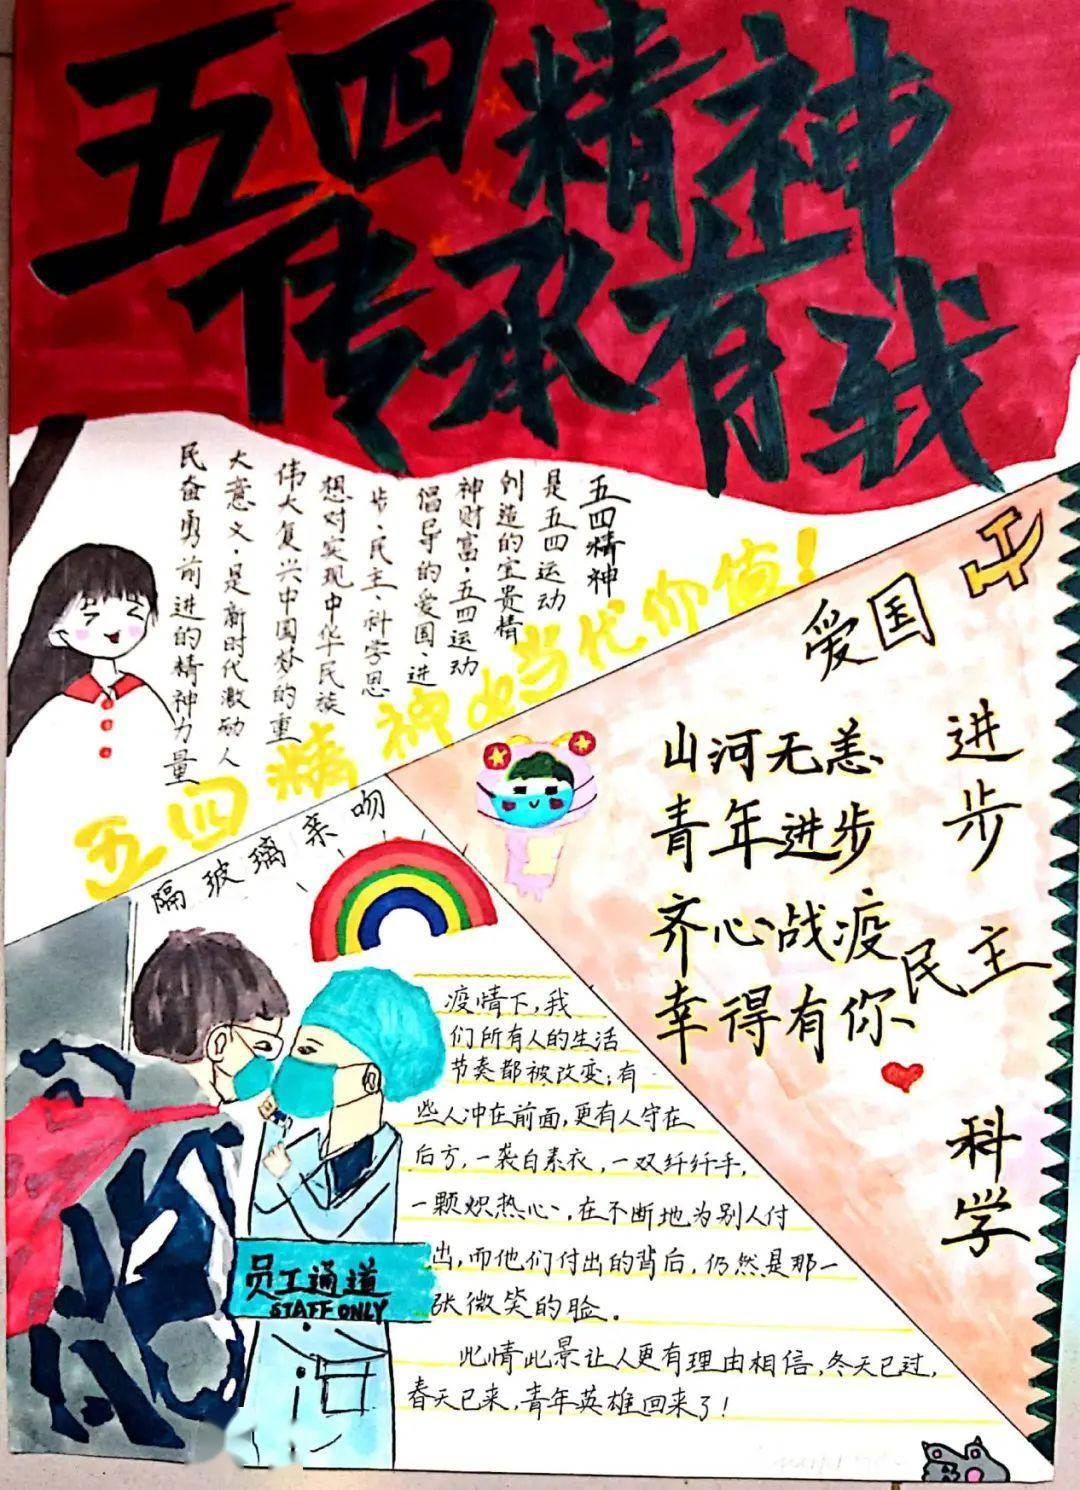 五四精神
传承有我
五四精神
是五四运动
创造的宝贵精
神财富·五四运动
倡导的爱国、进
步、民主、科学思
想对实现中华民族
伟大复兴中国梦的重
大意义·是新时代激励人
民奋勇前进的精神力量
五四精神de当代价值!
爱国
进步
民主
科学
山河无恙
青年进步
齐心战疫
幸得有你
隔玻璃亲吻
疫情下,我
们所有人的生活
节奏都被改变;有
些人冲在前面,更有人守在
后方,一袭白素衣,一双纤纤手,
一颗炽热心,在不断地为别人付
出,而他们付出的背后,仍然是那一
张微笑的脸。
此情此景让人更有理由相信,冬天已过,
春天已来,青年英雄回来了!
员工通道
STAFF ONLY